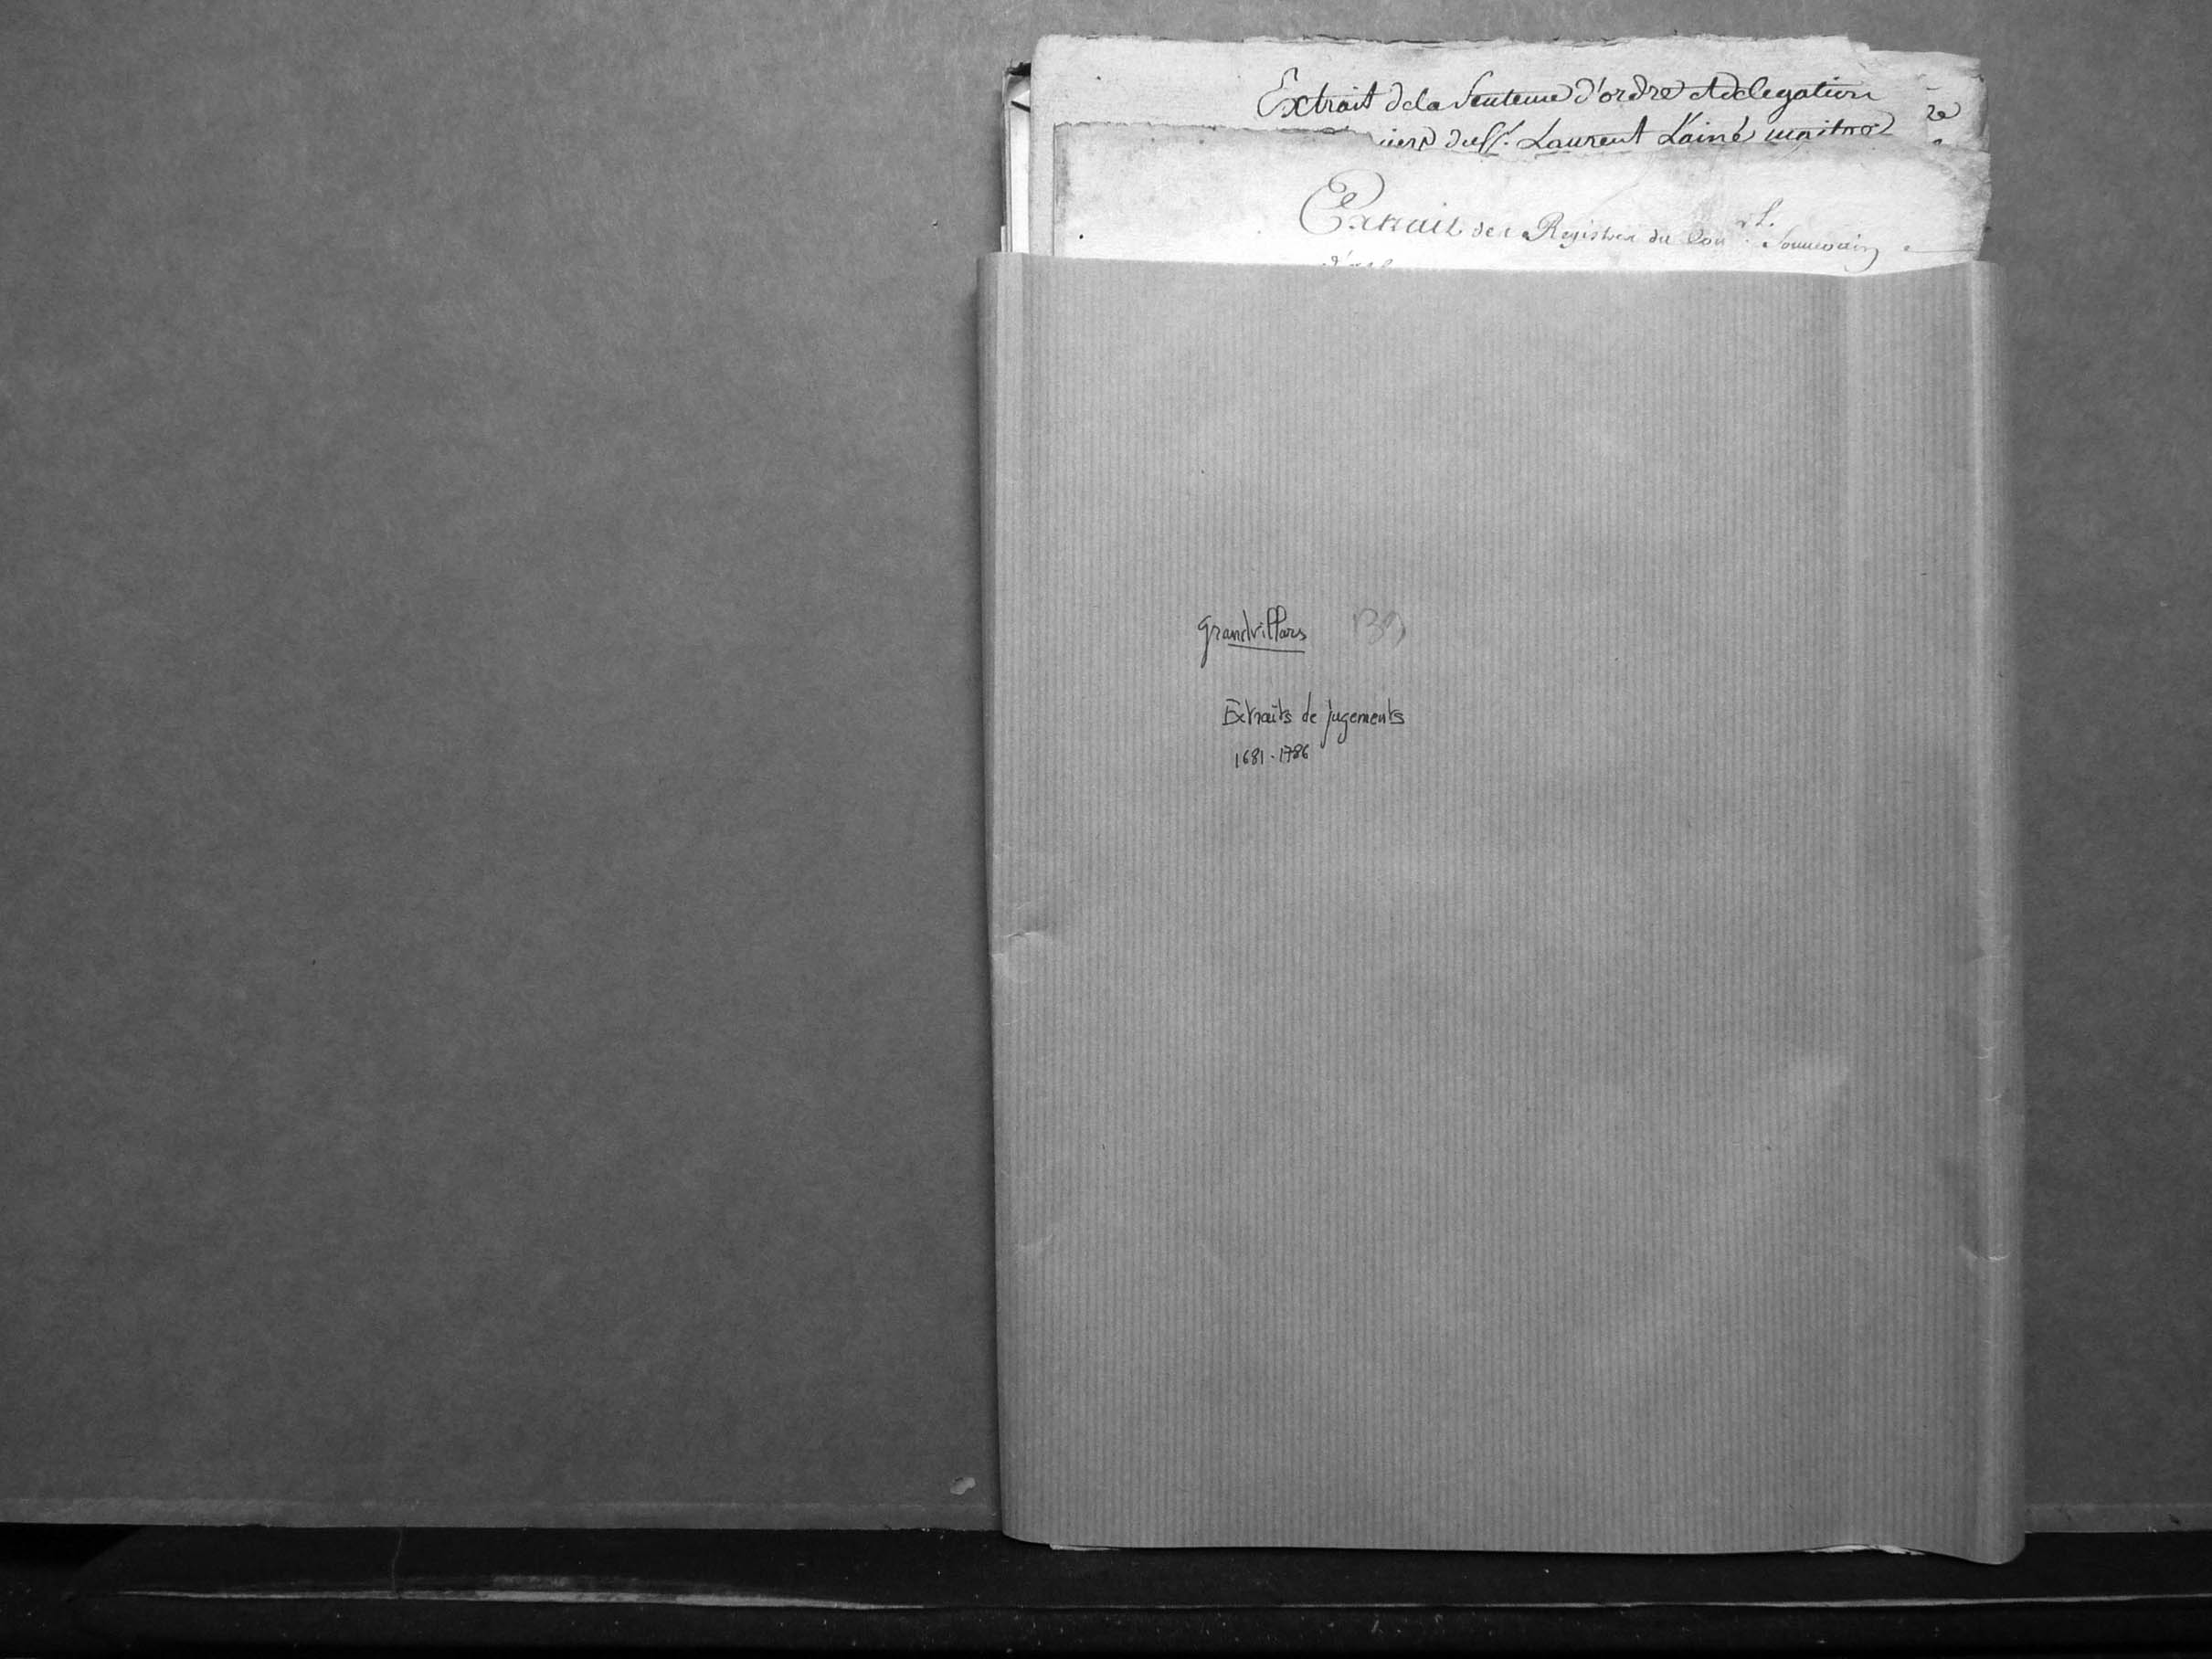 Extrait dela Sentence d'ordre et delegation
iers du Sr. Laurent L'ainé maitre
Extrait des Registres du Con.rl. Souverain
Grandvillars 139
Extraits de jugements
1681-1786